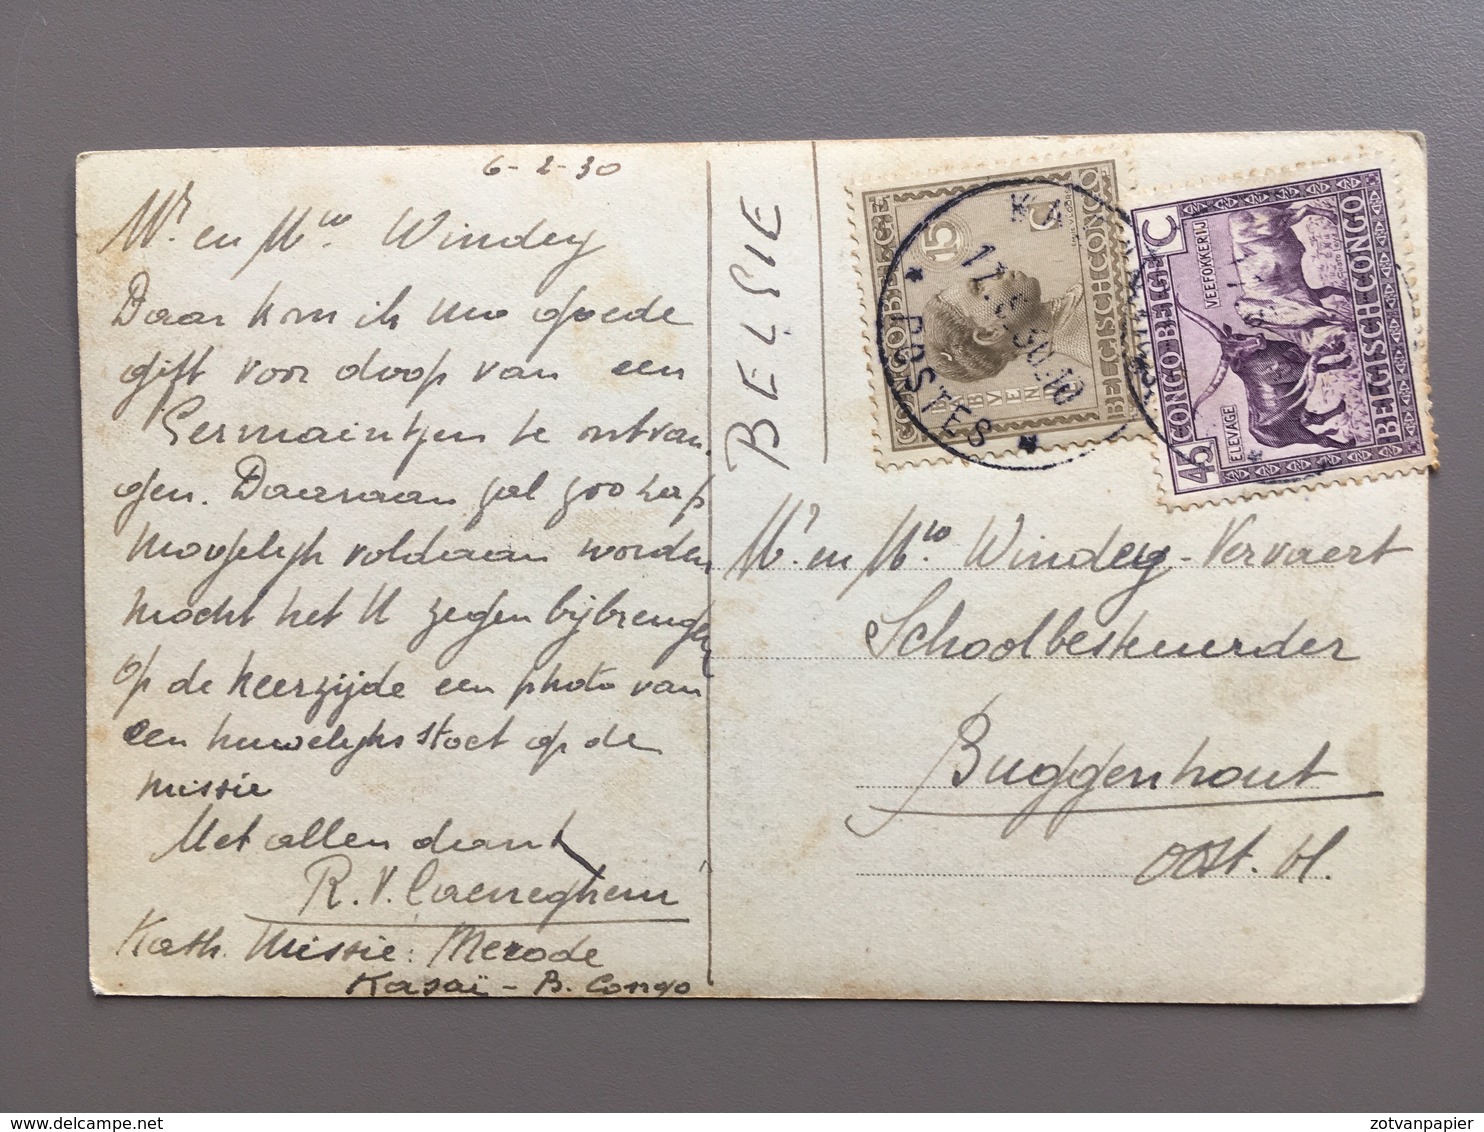 6-2-30
Mr. en Mw Windey
Daar kom ik uw goede
gift voor doop van een
Germaintjen te ontvan-
gen. Daaraan zal zoo rap
mogelijk voldaan worden
mocht het U zegen bijbrengen
op de keerzijde een photo van
een huwelijksstoet op de
missie
Met allen dank
R. V. Caeneghem
Kath. Missie: Merode
Kasaï - B. Congo
BELGIE
Mr. en Mw Windey-Vervaert
Schoolbestuurder
Buggenhout
Oost. Vl.
CONGO BELGE
15 C
BELGISCH CONGO
KA
17. 30.10
POSTES
CONGO BELGE
45 C
ELEVAGE
VEEFOKKERIJ
BELGISCH CONGO
zotvanpapier